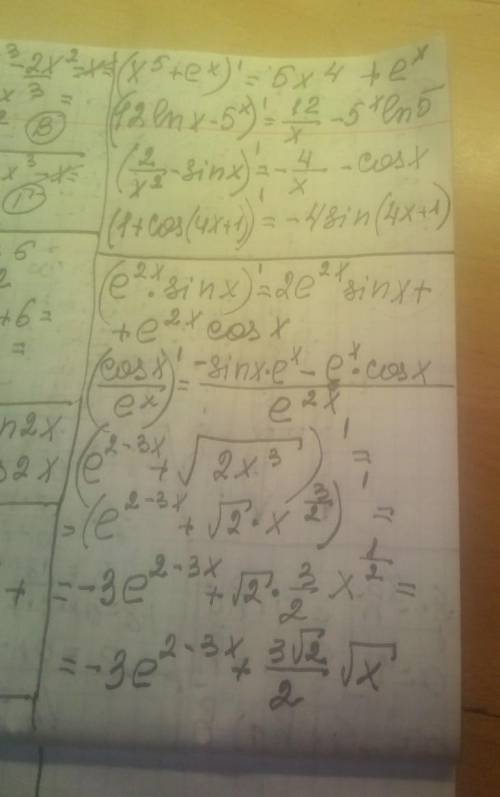 ³ - 2x² - x
x³ =
(B)
x³ - x =
(Г)
- 6
2
+ 6 =
=
n2x
s2x
+
(x⁵ + eˣ)' = 5x⁴ + eˣ
(12lnx - 5ˣ)' = 12/x - 5ˣln5
(2/x² - sinx)' = -4/x - cosx
(1 + cos(4x+1))' = -4sin(4x+1)
(e²ˣ · sinx)' = 2e²ˣ sinx +
+ e²ˣ cosx
(cosx/eˣ)' = (-sinx·eˣ - eˣ·cosx)/e²ˣ
(e^(2-3x) + √(2x³))' =
= (e^(2-3x) + √2 · x^(3/2))' =
= -3e^(2-3x) + √2 · 3/2 x^(1/2) =
= -3e^(2-3x) + 3√2/2 √x